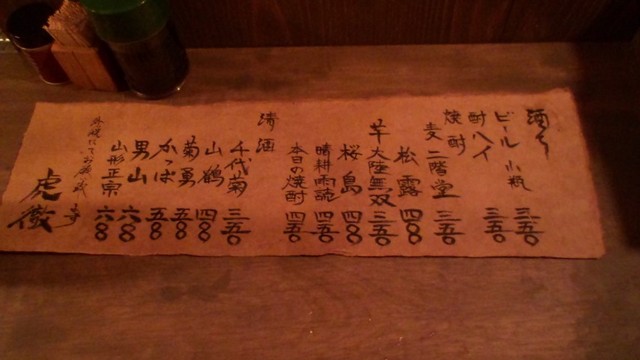 酒々
ビール 小瓶 三五〇
酎ハイ 三五〇
焼酎
麦 二階堂 三五〇
松露 四〇〇
芋 大陸無双 三五〇
桜島 四〇〇
晴耕雨読 四五〇
本日の焼酎 四五〇
清酒
千代菊 三五〇
山鶴 四〇〇
菊勇 五〇〇
かっぱ 五〇〇
男山 六〇〇
山形正宗 六〇〇